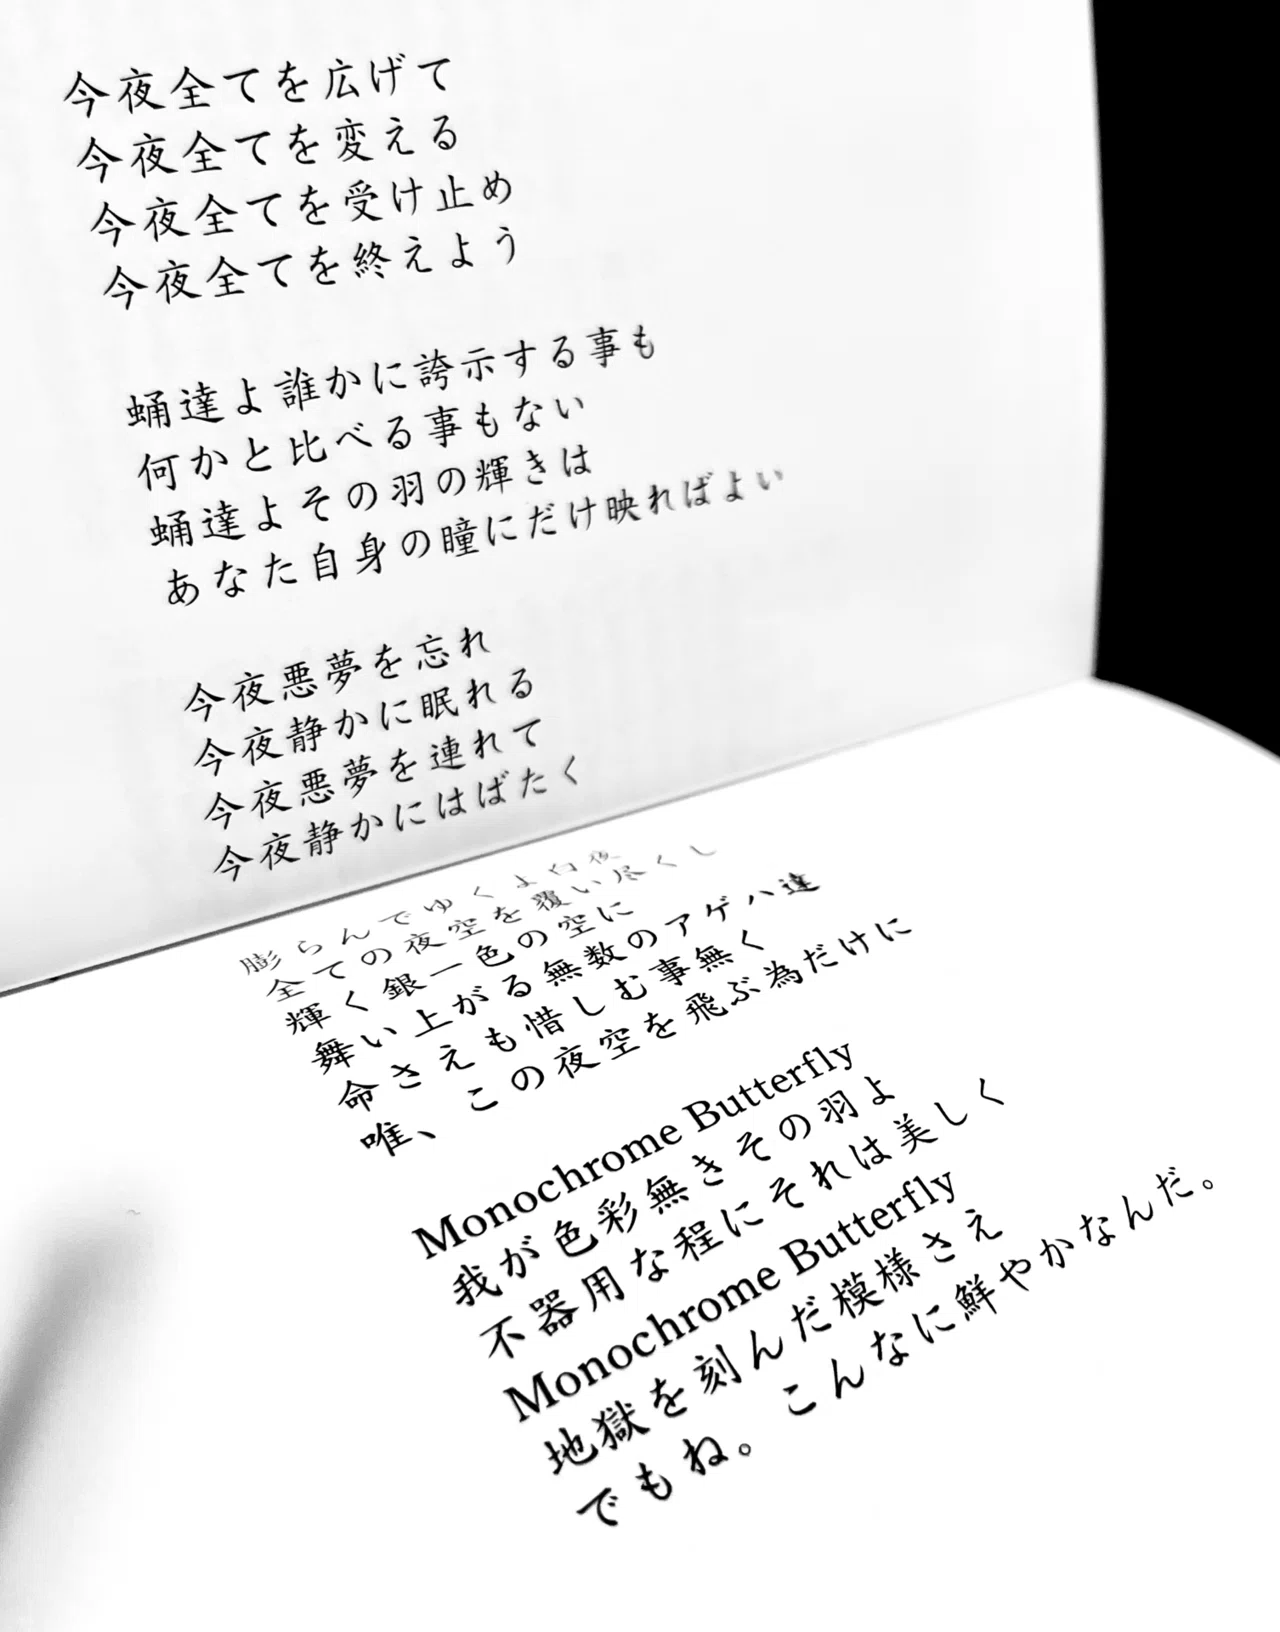 今夜全てを広げて
今夜全てを変える
今夜全てを受け止め
今夜全てを終えよう
蛹達よ誰かに誇示する事も
何かと比べる事もない
蛹達よその羽の輝きは
あなた自身の瞳にだけ映ればよい
今夜悪夢を忘れ
今夜静かに眠れる
今夜悪夢を連れて
今夜静かにはばたく
膨らんでゆくよ白夜
全ての夜空を覆い尽くし
輝く銀一色の空に
舞い上がる無数のアゲハ達
命さえも惜しむ事無く
唯、この夜空を飛ぶ為だけに
Monochrome Butterfly
我が色彩無きその羽よ
不器用な程にそれは美しく
Monochrome Butterfly
地獄を刻んだ模様さえ
でもね。こんなに鮮やかなんだ。